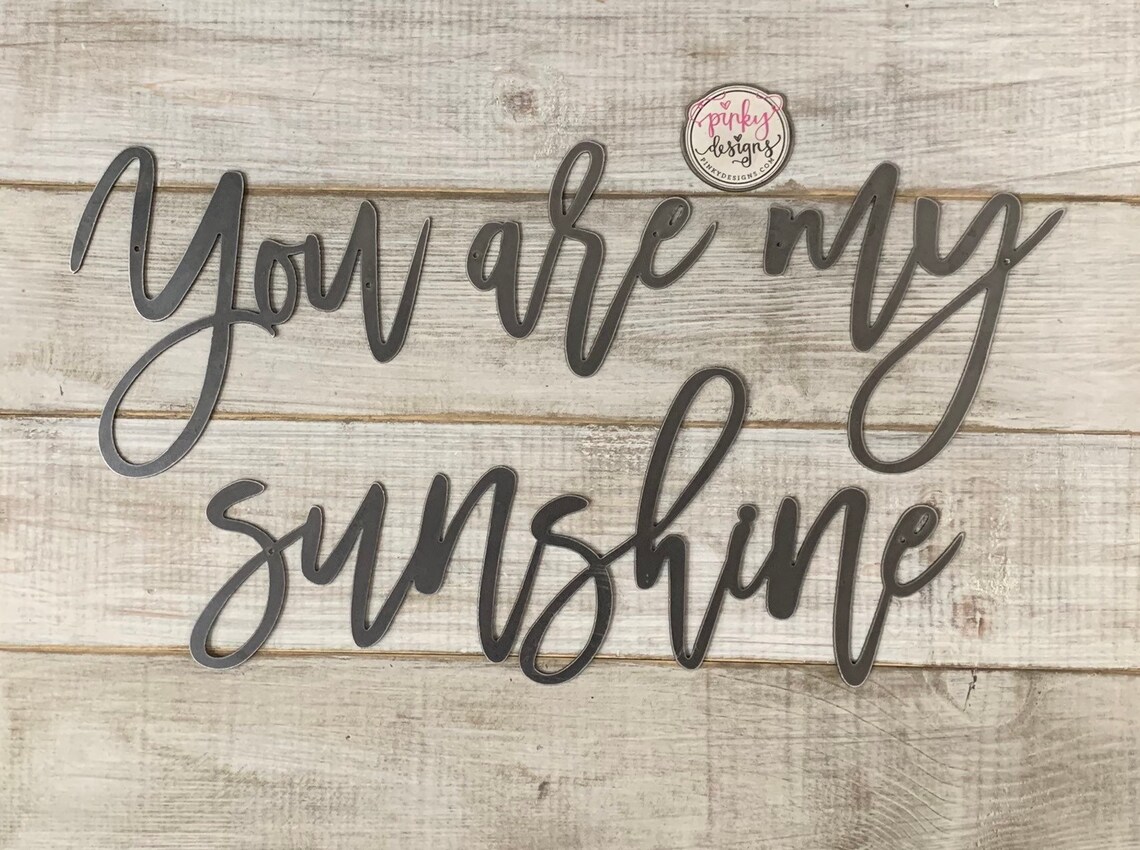 pinky
designs
PINKYDESIGNS.COM
You are my
sunshine